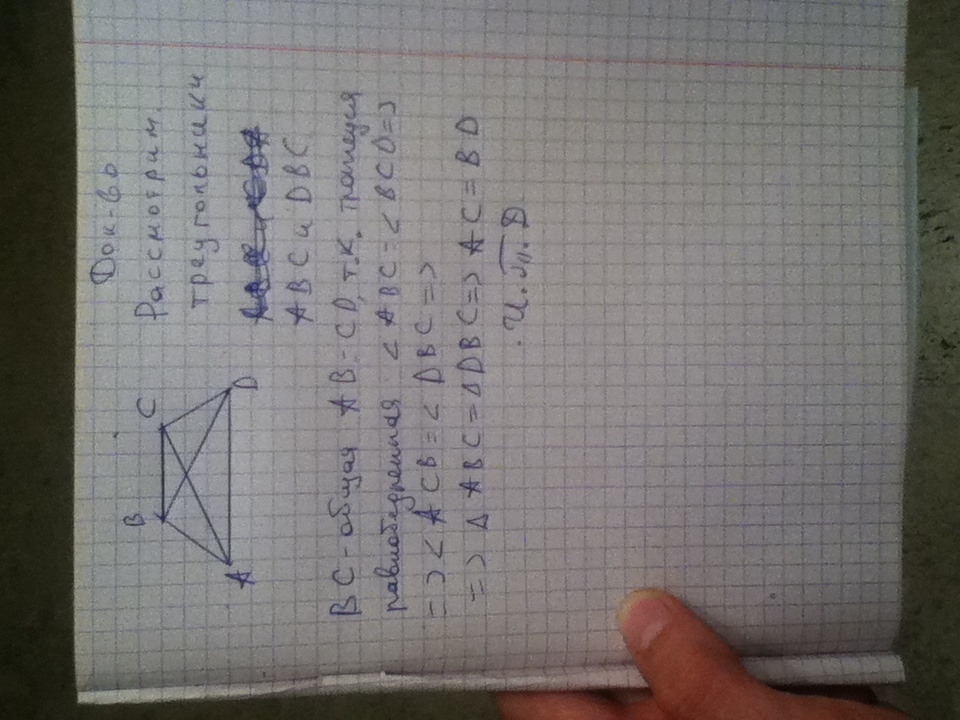 Док-во
Рассмотрим.
треугольники
ABC и DBC
B
C
A
D
BC - общая AB = CD, т.к. трапеция
равнобедренная <ABC = <BCD =>
=> < ACB = < DBC =>
=> Δ ABC = Δ DBC => AC = BD
Ч.т.Д.